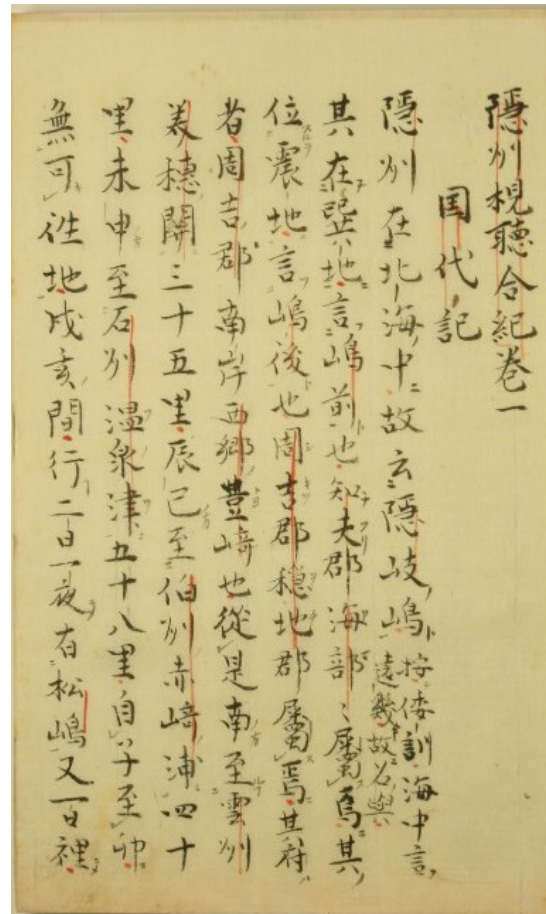 隠州視聴合紀巻一
国代記
隠州在北海中故云隠岐嶋按倭訓海中言遠幾故名与
其在巽地言嶋前也知夫郡海部〻属焉其
位震地言嶋後也周吉郡穏地郡属焉其府
者周吉郡南岸西郷豊﨑也従是南至雲州
美穂関三十五里辰巳至伯州赤﨑浦四十
里未申至石州温泉津五十八里自子至卯
無可往地戍亥間行二日一夜有松嶋又一日裡